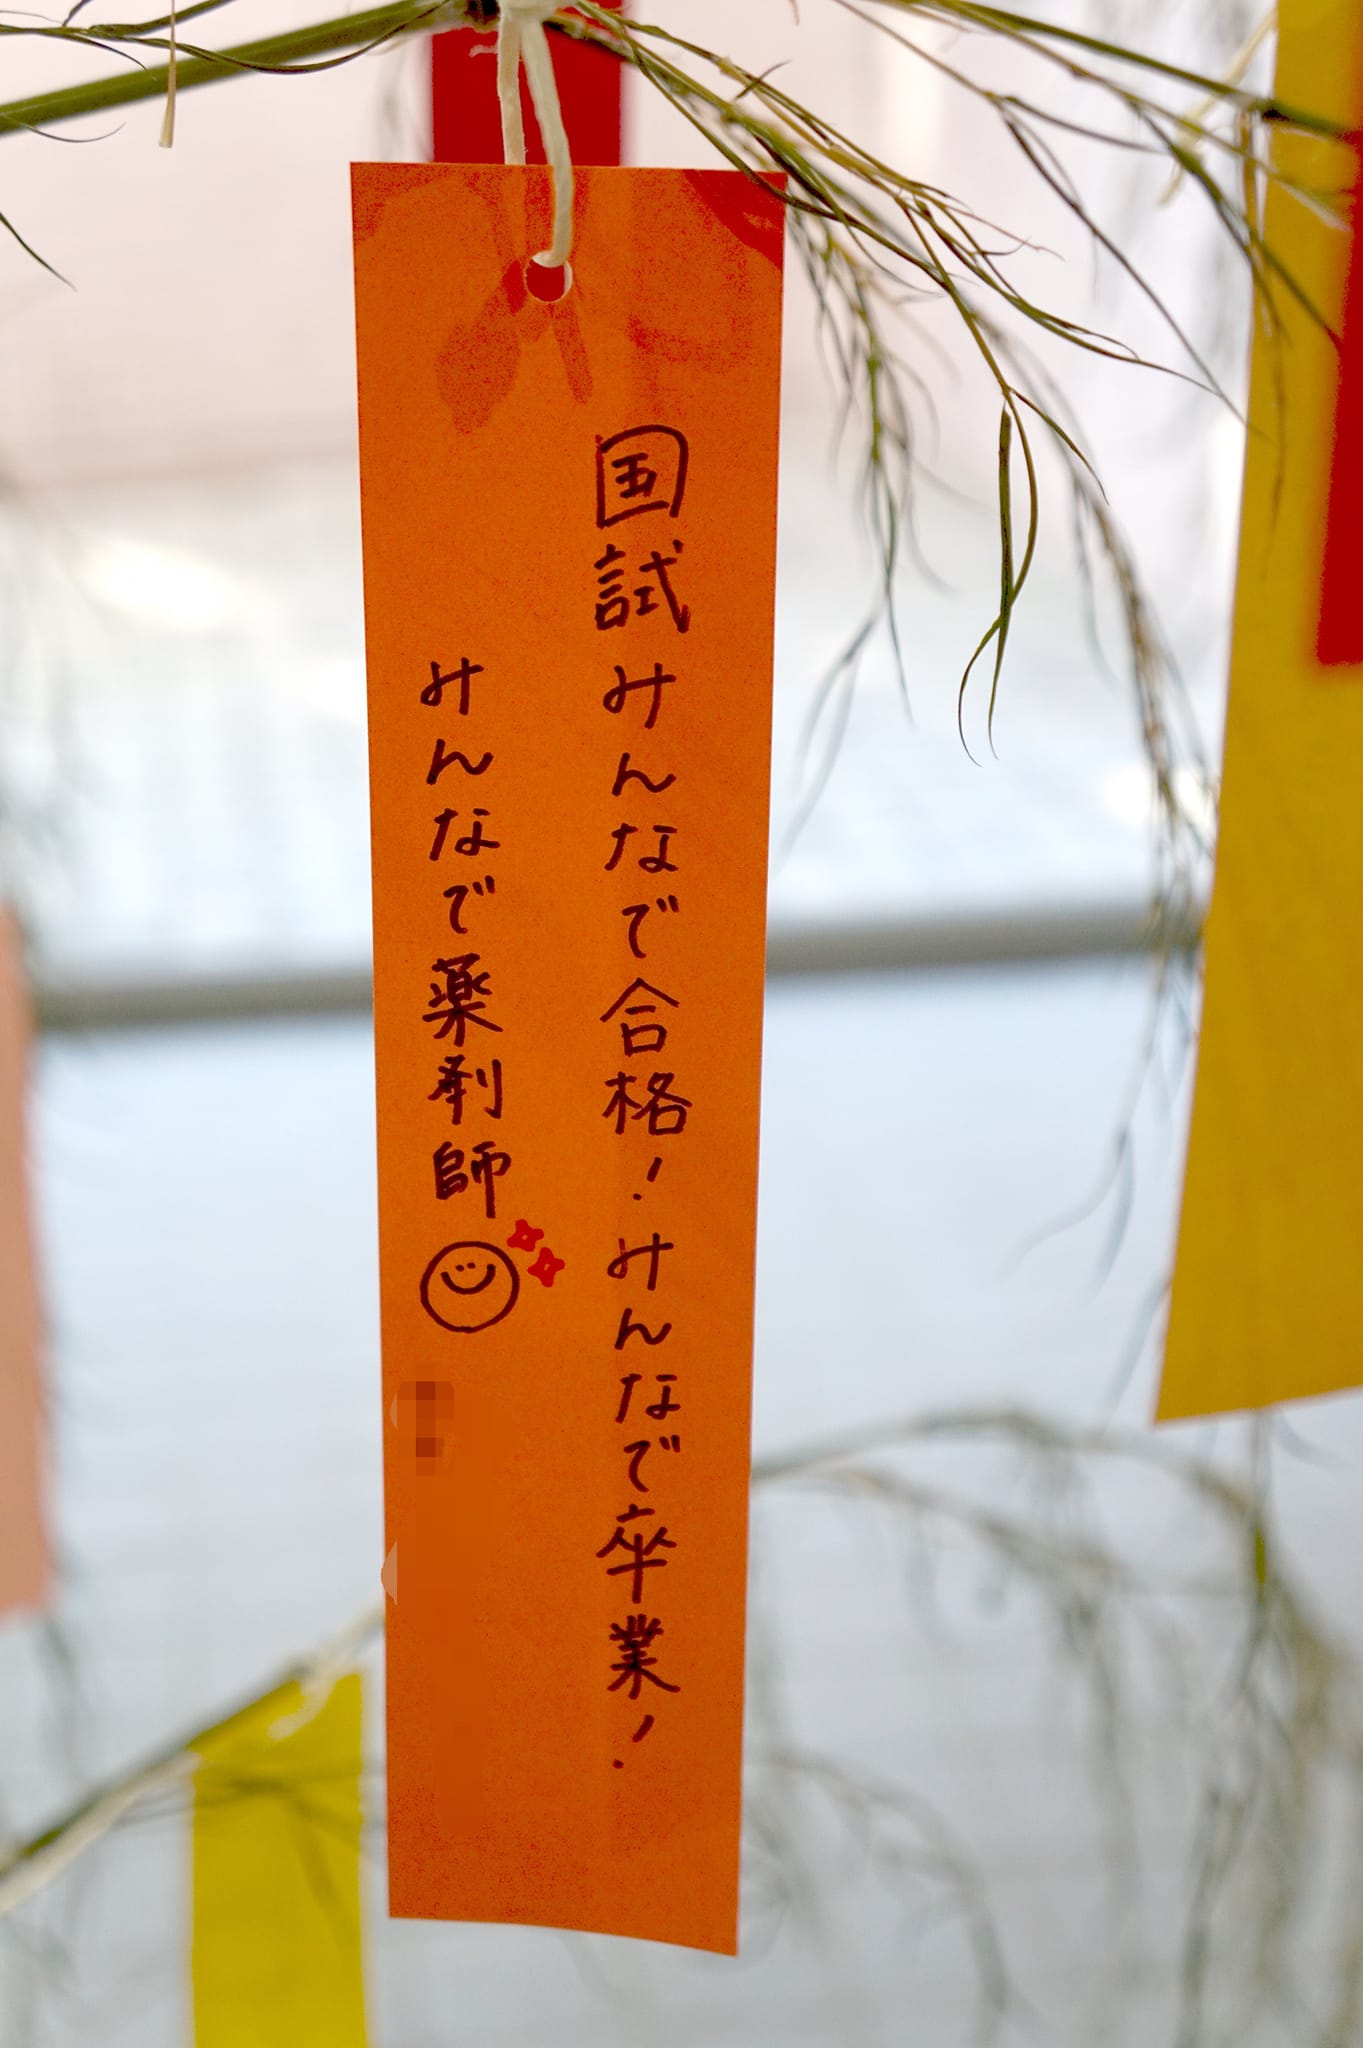 国試みんなで合格!みんなで卒業!
みんなで薬剤師